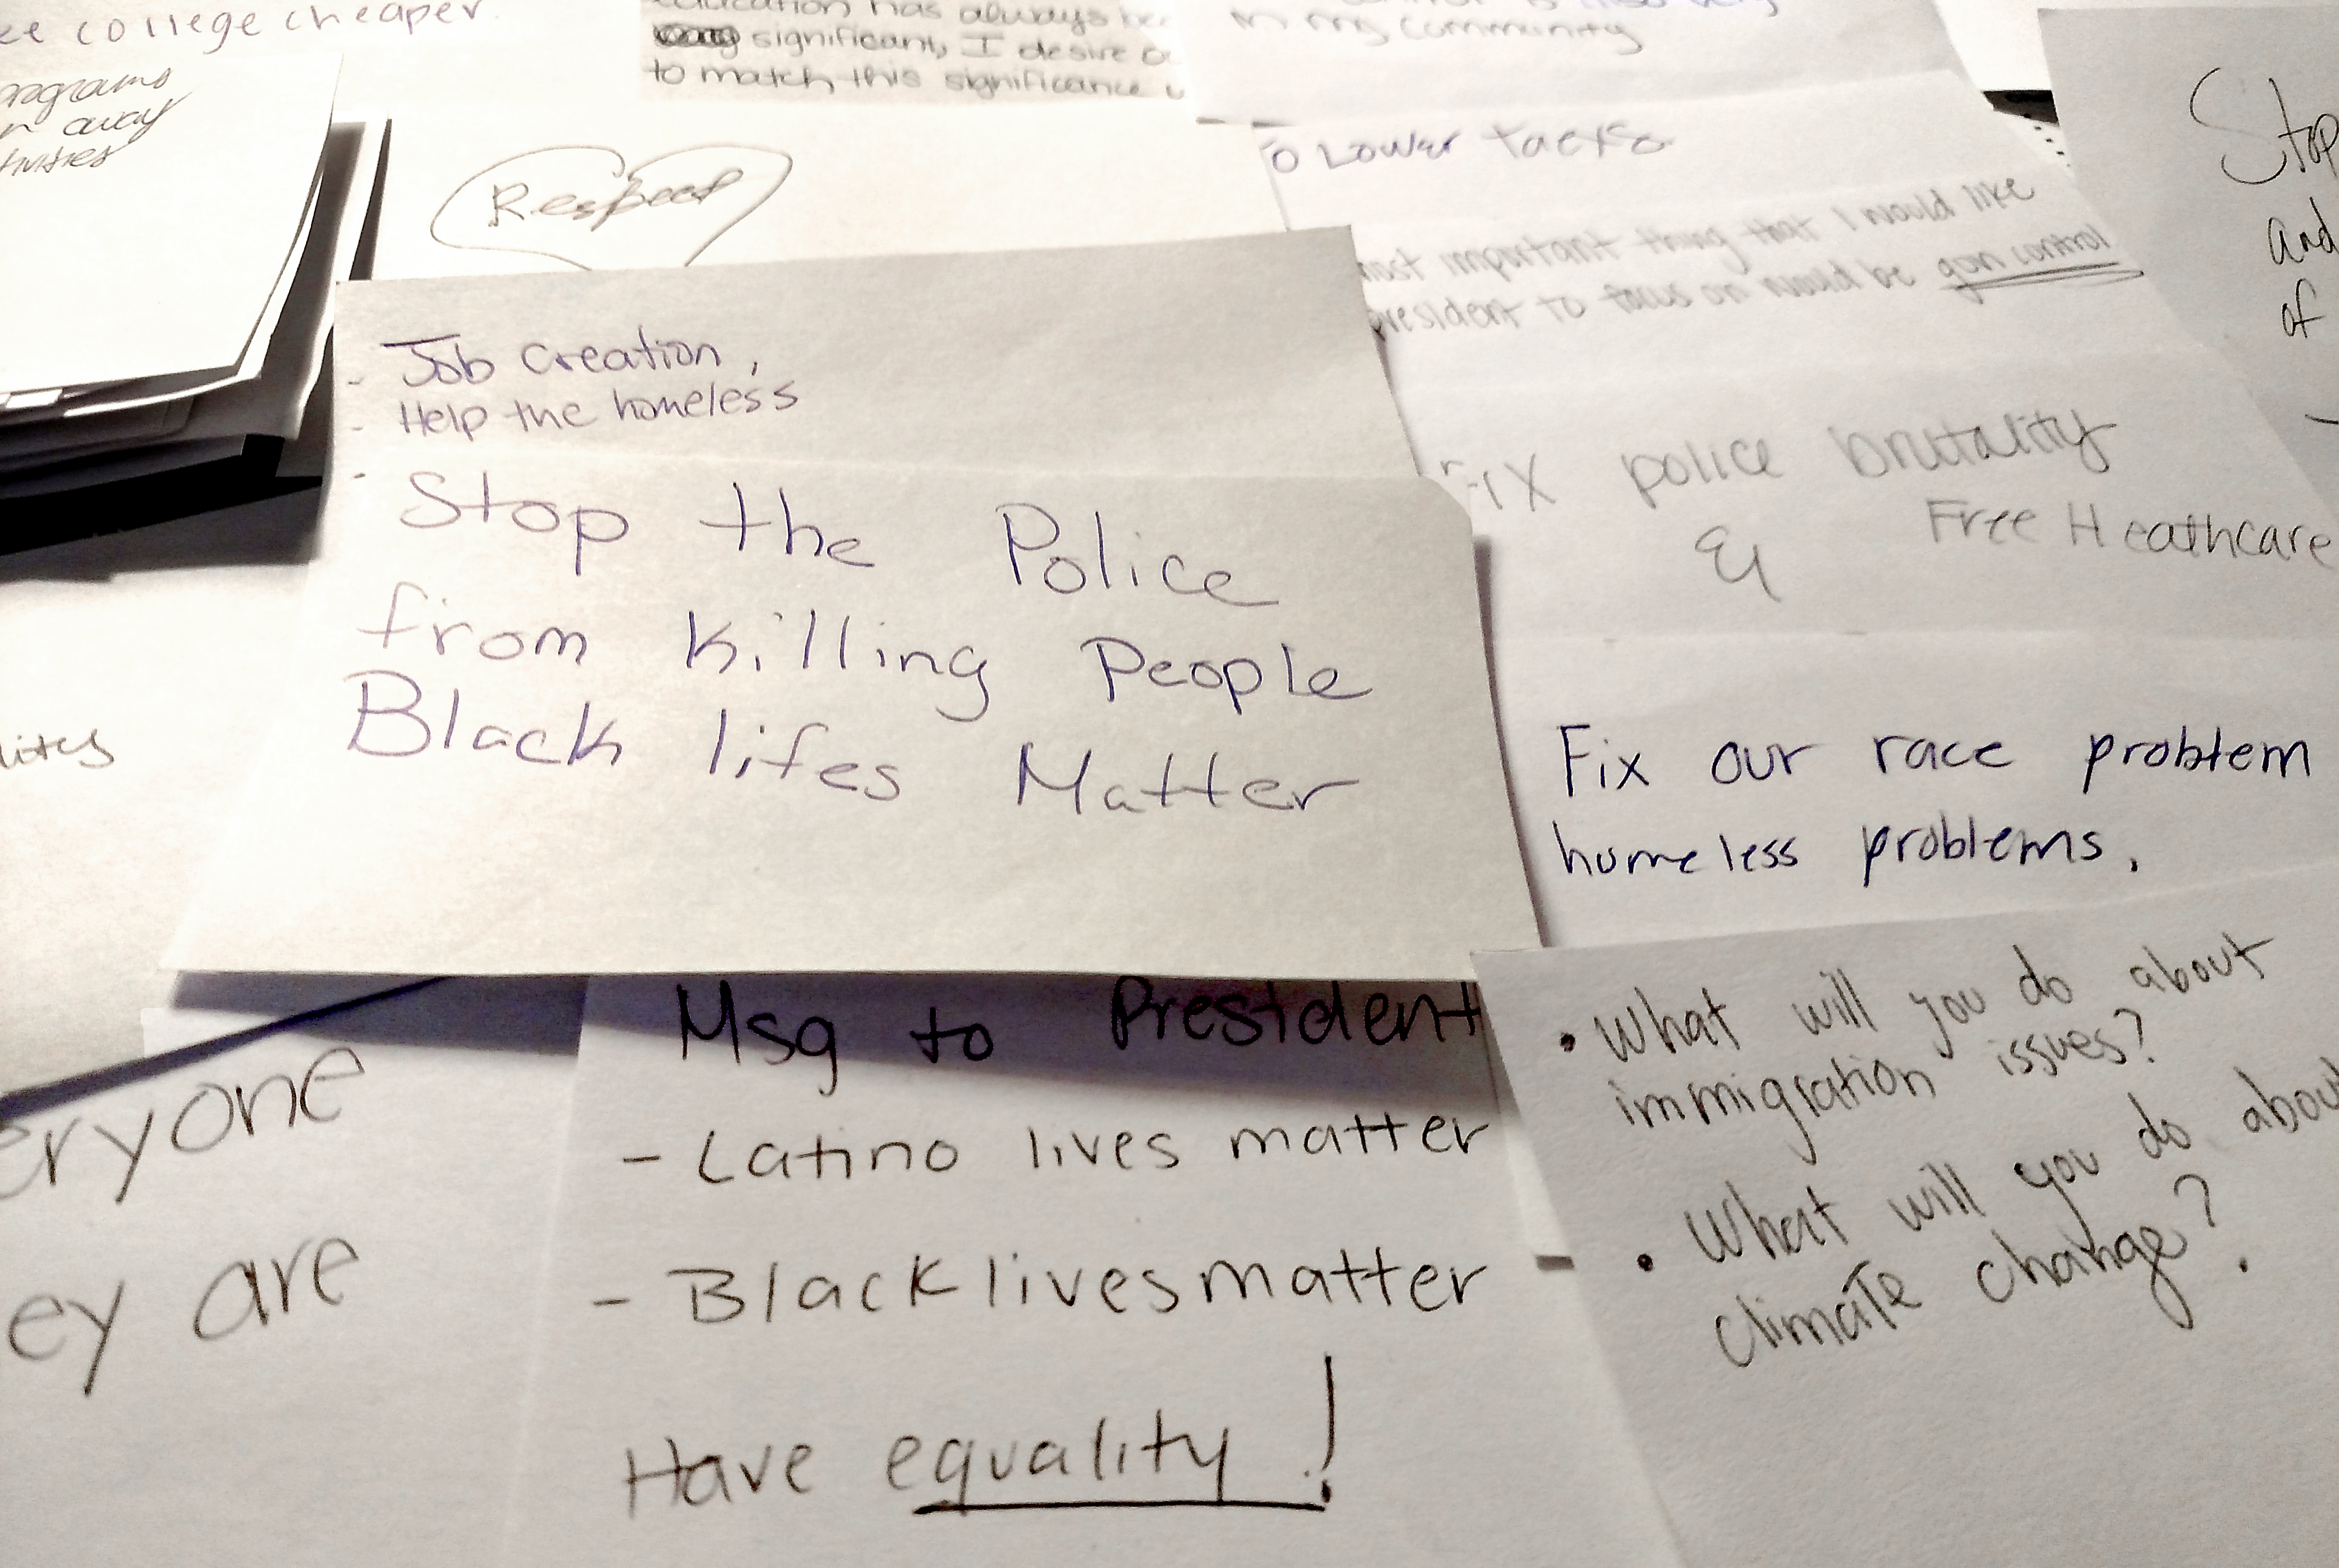 college cheaper
away
significant, I desire
to match this significance
in my community
Respect
Lower
important thing that I would like
president to focus on would be gun control
Stop
and
of
- Job creation,
- Help the homeless
- Stop the Police
from killing People
Black lifes Matter
Fix police brutality
& Free Heathcare
Fix our race problem
homeless problems.
Msg to President
- Latino lives matter
- Blacklivesmatter
Have equality!
• What will you do about
immigration issues?
• What will you do about
climate change?
are